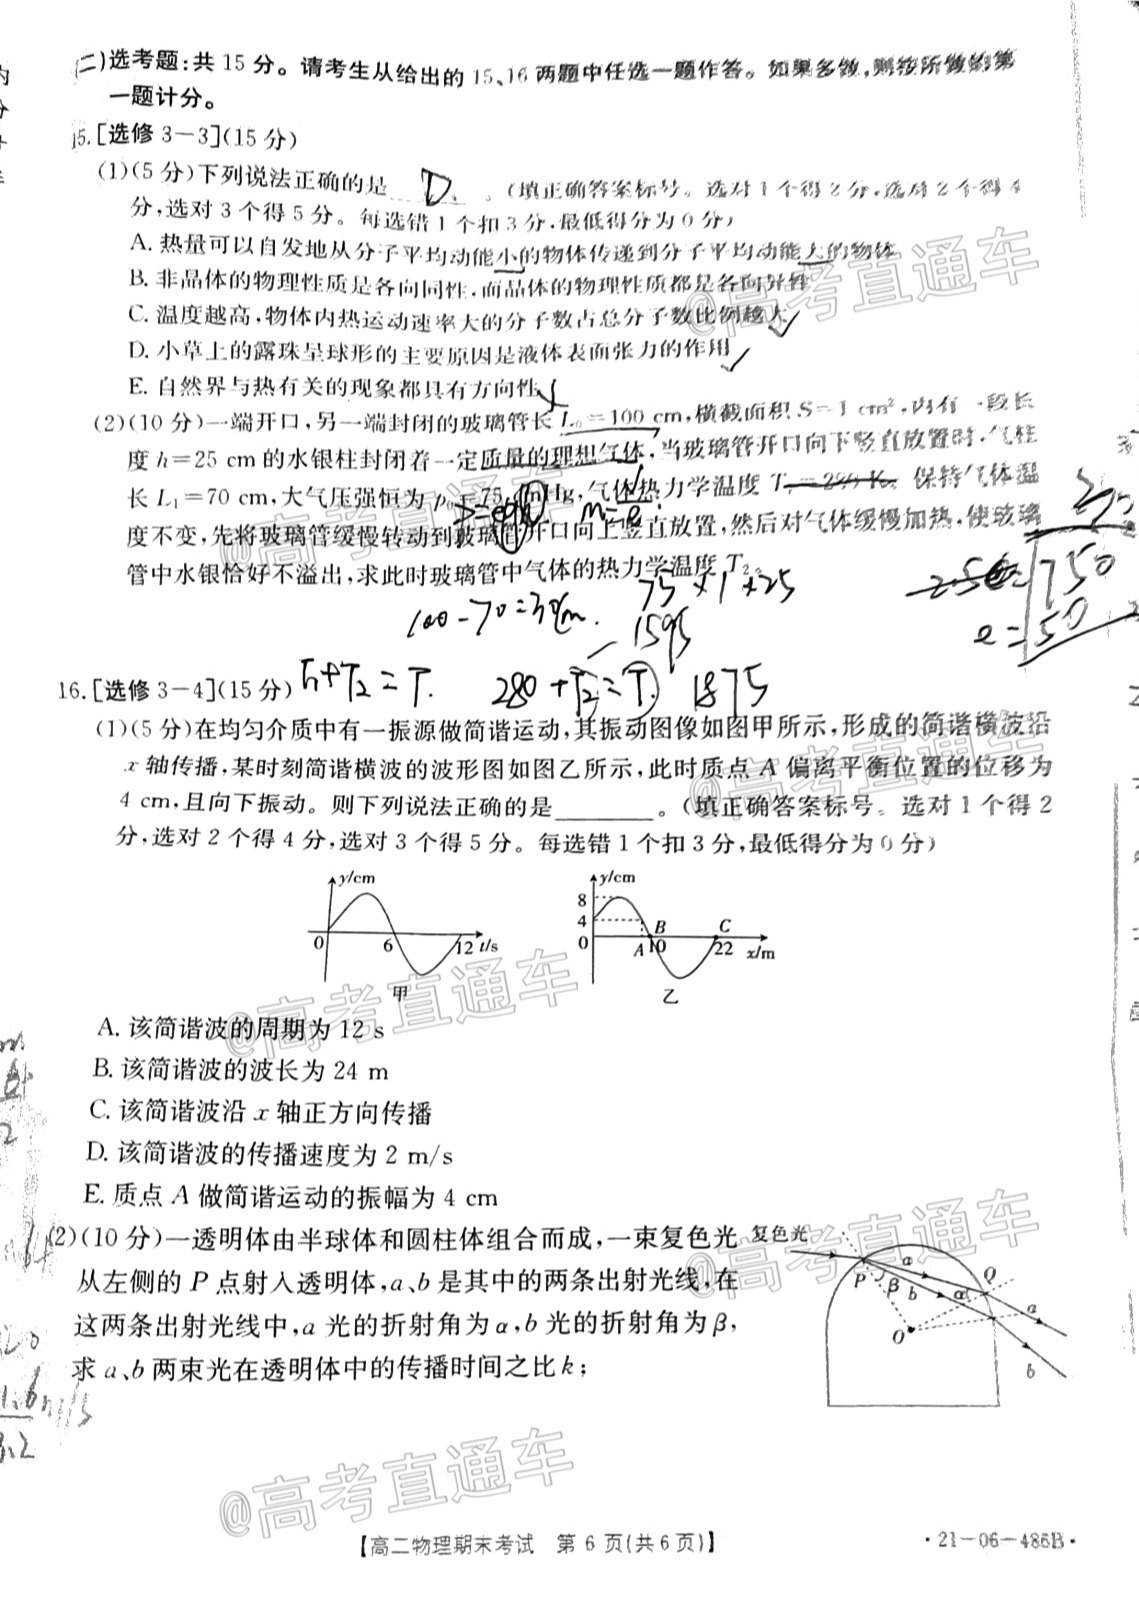 (二)选考题:共15分。请考生从给出的15、16两题中任选一题作答。如果多做,则按所做的第
一题计分。
15.[选修3-3](15分)
(1)(5分)下列说法正确的是 D 。(填正确答案标号。选对1个得2分,选对2个得4
分,选对3个得5分。每选错1个扣3分,最低得分为0分)
A. 热量可以自发地从分子平均动能小的物体传递到分子平均动能大的物体
B. 非晶体的物理性质是各向同性,而晶体的物理性质都是各向异性
C. 温度越高,物体内热运动速率大的分子数占总分子数比例越大
D. 小草上的露珠呈球形的主要原因是液体表面张力的作用
E. 自然界与热有关的现象都具有方向性
(2)(10分)一端开口,另一端封闭的玻璃管长L₀=100 cm,横截面积S=1 cm²,内有一段长
度h=25 cm的水银柱封闭着一定质量的理想气体,当玻璃管开口向下竖直放置时,气柱
长L₁=70 cm,大气压强恒为p₀=75 cmHg,气体热力学温度T₁=280 K。保持气体温
度不变,先将玻璃管缓慢转动到玻璃管开口向上竖直放置,然后对气体缓慢加热,使玻璃
管中水银恰好不溢出,求此时玻璃管中气体的热力学温度T₂。
75×1×25
750
100-70=30cm.
1595
50
16.[选修3-4](15分)
T₁+T₂=T.
280+T₂=T.
1875
(1)(5分)在均匀介质中有一振源做简谐运动,其振动图像如图甲所示,形成的简谐横波沿
x轴传播,某时刻简谐横波的波形图如图乙所示,此时质点A偏离平衡位置的位移为
4 cm,且向下振动。则下列说法正确的是______。(填正确答案标号。选对1个得2
分,选对2个得4分,选对3个得5分。每选错1个扣3分,最低得分为0分)
y/cm
0 6 12 t/s
甲
y/cm
8
4
0 A B 10 C 22 x/m
乙
A. 该简谐波的周期为12 s
B. 该简谐波的波长为24 m
C. 该简谐波沿x轴正方向传播
D. 该简谐波的传播速度为2 m/s
E. 质点A做简谐运动的振幅为4 cm
(2)(10分)一透明体由半球体和圆柱体组合而成,一束复色光
从左侧的P点射入透明体,a、b是其中的两条出射光线,在
这两条出射光线中,a光的折射角为α,b光的折射角为β,
求a、b两束光在透明体中的传播时间之比k;
复色光
P β a b α Q
O a
b
@高考直通车
@高考直通车
@高考直通车
@高考直通车
@高考直通车
@高考直通车
【高二物理期末考试 第6页(共6页)】
·21-06-486B·